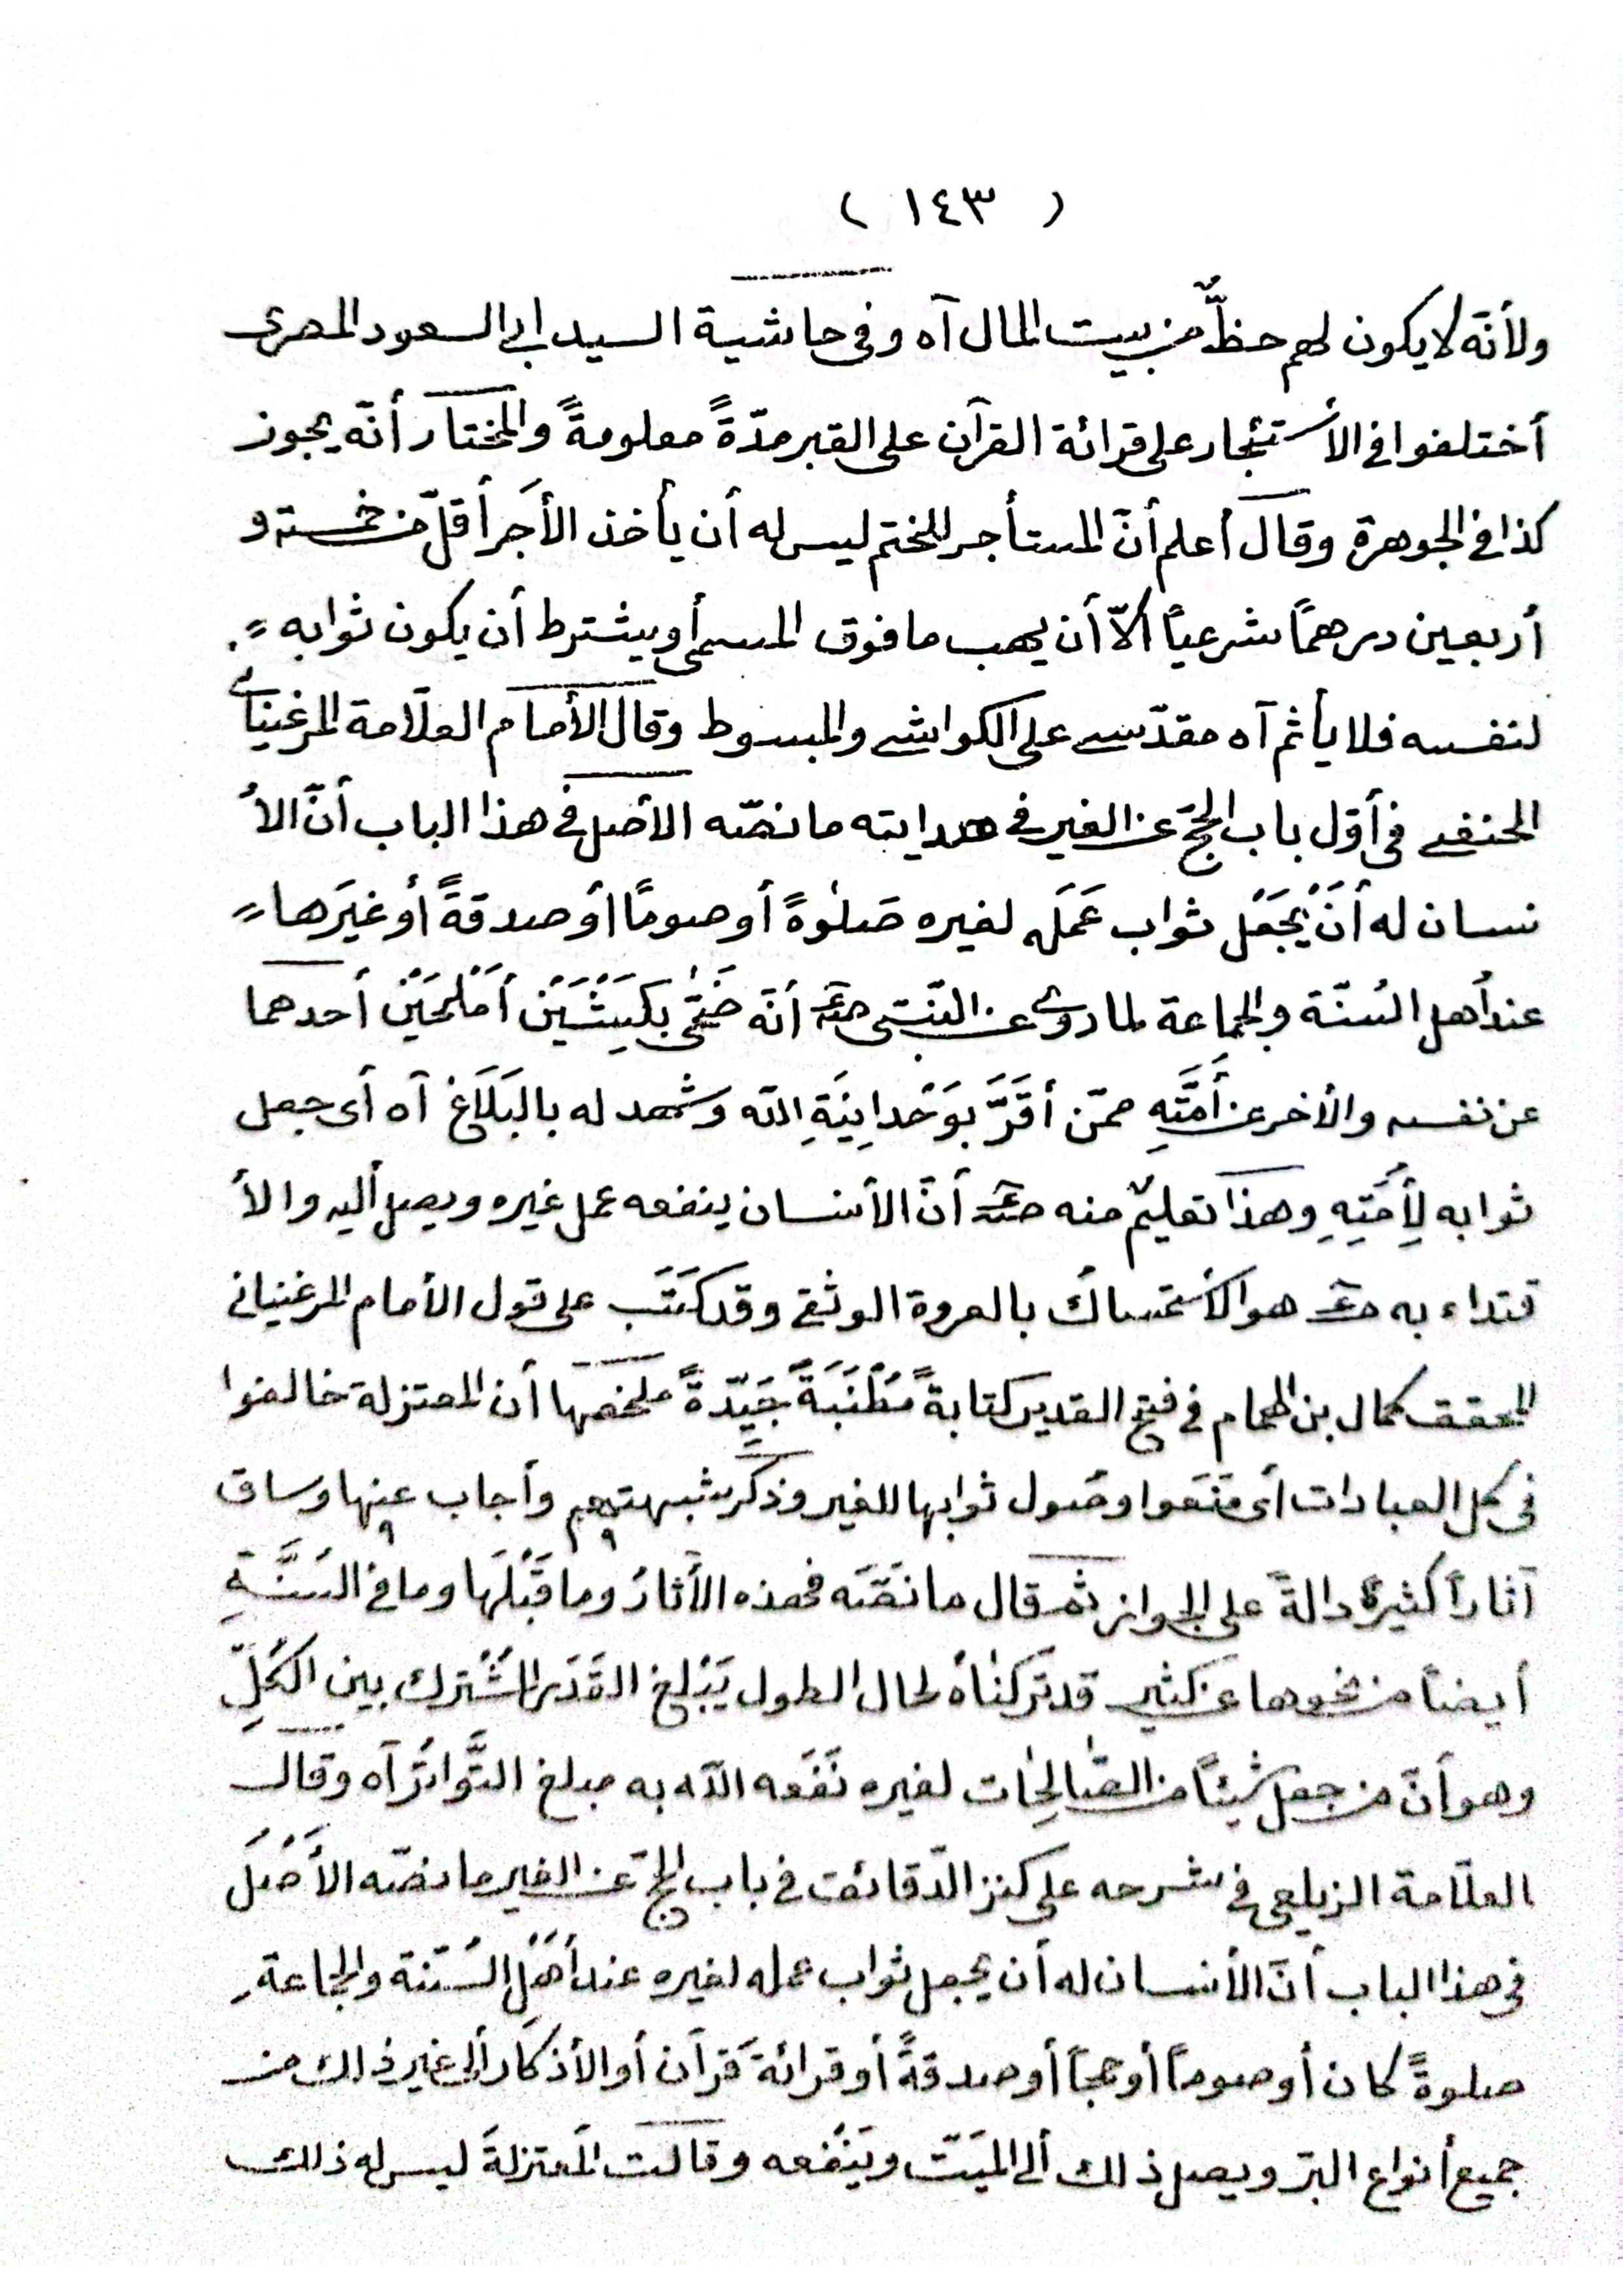 ( ١٤٣ )
ولأنّه لا يكون لهم حظٌّ من بيت المال آه وفى حاشية السيد ابى السعود المصرى
أختلفوا فى الأستئجار على قرائة القرآن على القبر مدّةً معلومةً والمختار أنّه يجوز
كذا فى الجوهرة وقال أعلم أنّ المستأجر للختم ليس له أن يأخذ الأجر أقلّ من خمسة و
أربعين درهمًا شرعيًا ألاّ أن يهب ما فوق المسمى أو يشترط أن يكون ثوابه
لنفسه فلا يأثم آه مقدّسى على الكواشى والمبسوط وقال الأمام العلاّمة المرغينانى
الحنفى فى أوّل باب الحجّ عن الغير فى هدايته ما نصّه الأصل فى هذا الباب أنّ الأ
نسان له أنْ يَجْعَل ثواب عَمَله لغيره صَلوٰةً أو صومًا أو صدقةً أو غيرَها
عند أهل السُنّة والجماعة لما روى عن النّبى صَعَم أنّه ضَحّٰى بكَبْشَيْن أمْلَحَيْن أحدهما
عن نفسه والأخر عن أُمَّتِهِ ممّن أقَرَّ بوَحْدانِيَةِ الله وشهد له بالبَلَاغ آه أى جعل
ثوابه لِأُمَّتِهِ وهذا تعليمٌ منه صَعَم أنّ الأنسان ينفعه عمل غيره ويصل أليه والأ
قتداء به صَعَم هو الأستمساك بالعروة الوثقى وقد كَتَبَ على قول الأمام المرغينانى
المحقق كمال بن الهمام فى فتح القدير كتابةً مُطْنَبَةً جَيّدةً ملخصها أن المعتزلة خالفوا
فى كل العبادات أى مَنَعوا وصُول ثوابها للغير وذكر شبهتهم وأجاب عنها وساق
آثاراً كثيرةً دالةً على الجواز ثم قال ما نَصّه فهذه الأثارُ وما قَبْلَها وما فى السُنَّةِ
أيضاً من نحوها عن كثير قد تركناهُ لحال الطول يَبْلغ القَدَر المُشْتَرك بين الكُلِّ
وهو أنّ من جعل شيئًا من الصّالِحٰات لغيره نَفَعه الله به مبلغ التَّواتُر آه وقال
العلاّمة الزيلعى فى شرحه على كنز الدّقائق فى باب الحجّ عن الغير ما نصّه الأَصْل
فى هذا الباب أنّ الأنسان له أن يجعل ثواب عمله لغيره عند أهْلِ السُنّنة والجماعة
صلوةً كان أو صوماً أو حجاً أو صدقةً أو قرائة قرآن أو الأذكار ألى غير ذالك من
جميع أنواع البرّ ويصل ذلك ألى الميّت ويَنْفعه وقالت المعتزلة ليس له ذلك